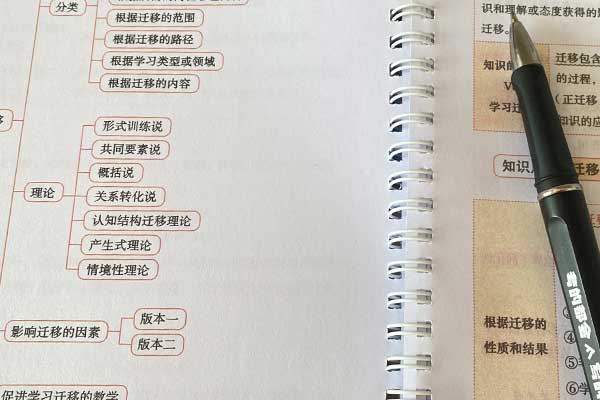 分类
根据迁移的范围
根据迁移的路径
根据学习类型或领域
根据迁移的内容
理论
形式训练说
共同要素说
概括说
关系转化说
认知结构迁移理论
产生式理论
情境性理论
影响迁移的因素
版本一
版本二
促进学习迁移的教学
识和理解或态度获得的
迁移。
知识的
迁移包含
V
的过程，
学习迁
（正迁移
知识的应
知识
迁移
根据迁移的
性质和结果
④
⑤
⑥学